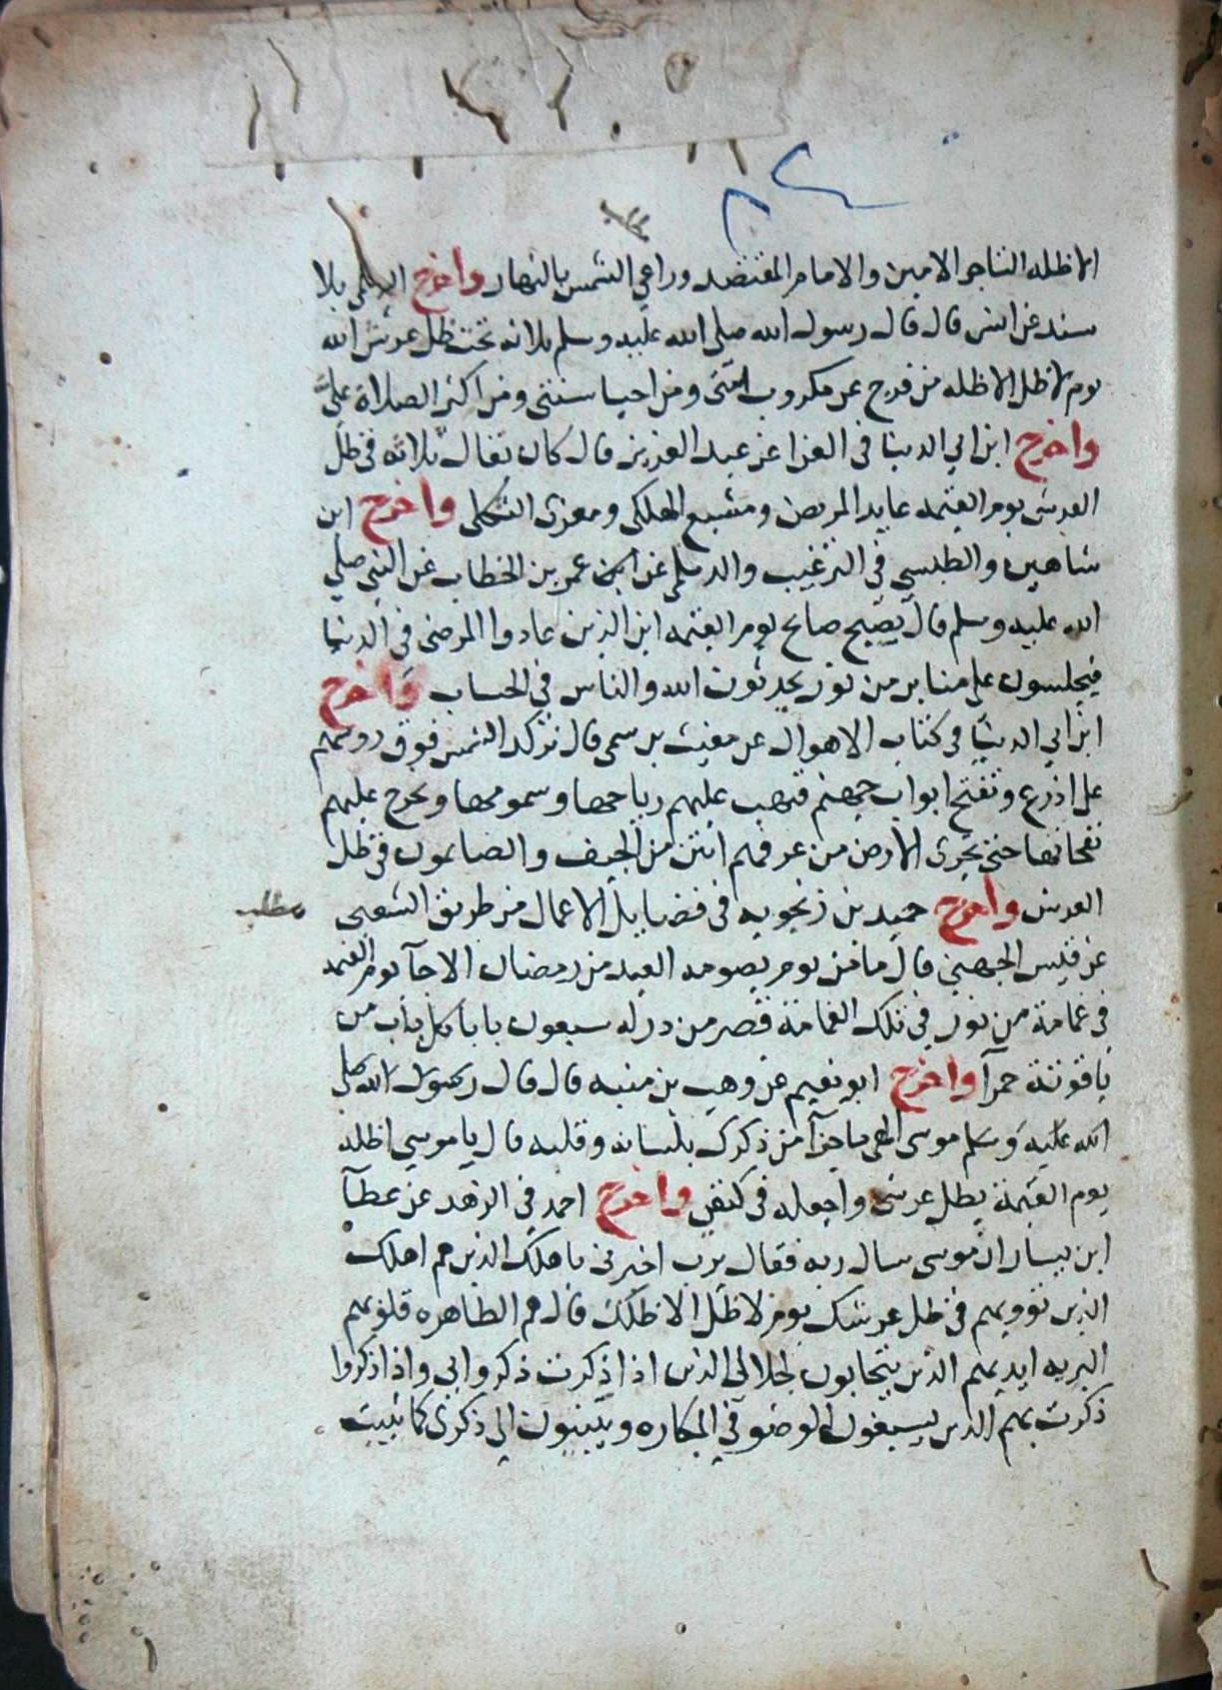 الا ظله التاجر الامين والامام المقتصد وراعي الشمس بالنهار واخرج الديلمي بلا
سند عن انس قال قال رسول الله صلى الله عليه وسلم ثلاثة تحت ظل عرش الله
يوم لا ظل الا ظله من فرج عن مكروب امتى ومن احيا سنتى ومن اكثر الصلاة علىّ
واخرج ابن ابي الدنيا في العزا عن عبد العزيز قال كان يقال ثلاثه في ظل
العرش يوم القيمه عايد المريض ومشيع الهلكى ومعزى الثكلى واخرج ابن
شاهين والطبسي في الترغيب والديلمى عن عمر بن الخطاب عن النبي صلي
الله عليه وسلم قال يصيح صايح يوم القيمه اين الذين عادوا المرضى في الدنيا
فيجلسون على منابر من نور يحدثون الله والناس في الحساب واخرج
ابن ابي الدنيا في كتاب الاهوال عن مغيث بن سمي قال تركد الشمس فوق روسهم
على اذرع وتفتح ابواب جهنم فتهب عليهم رياحها وسمومها ويخرج عليهم
نفحاتها حتى تجرى الارض من عرقهم انتن من الجيف والصايمون في ظل
العرش واخرج حميد بن زنجويه في فضايل الاعمال من طريق الشعبي
مطلب
عن قيس الجهني قال ما من يوم يصومه العبد من رمضان الا جآ يوم القيمه
في غمامة من نور في تلك الغمامة قصر من در له سبعون بابا كل باب من
ياقوتة حمرآ واخرج ابو نعيم عن وهب بن منبه قال قال رسول الله صلى
الله عليه وسلم موسى الهى ما جزآ من ذكرك بلسانه وقلبه قال يا موسي اظله
يوم القيمة بظل عرشى واجعله في كنفي واخرج احمد في الزهد عن عطآ
ابن يسار ان موسى سال ربه فقال يرب اخبرنى باهلك الذين هم اهلك
الذين تووديهم في ظل عرشك يوم لا ظل الا ظلك قال هم الطاهره قلوبهم
البريه ايديهم الذين يتحابون لجلالى الذين اذا ذكرت ذكروا بى واذا ذكروا
ذكرت بهم الذين يسبغون الوضو في المكاره وينيبون الي ذكرى كما تنيب